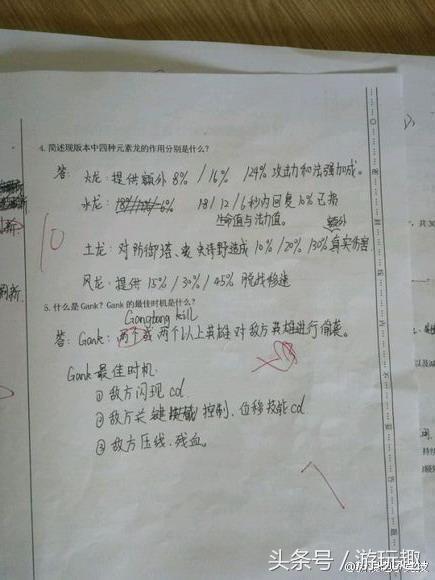 4. 简述现版本中四种元素龙的作用分别是什么？
答： 火龙：提供额外 8% / 16% / 24% 攻击力和法强加成。
水龙： 18 / 12 / 6 秒内回复 10% 已损
生命值与法力值。
额外
10
土龙：对防御塔、史诗野造成 10% / 20% / 30% 真实伤害
风龙：提供 15% / 30% / 45% 脱战移速
5. 什么是 Gank？Gank 的最佳时机是什么？
Gangbang kill
答：Gank：两个或两个以上英雄对敌方英雄进行偷袭。
Gank 最佳时机
① 敌方闪现 cd
② 敌方关键 控制、位移技能 cd
③ 敌方压线、残血。
7
头条号／游玩趣